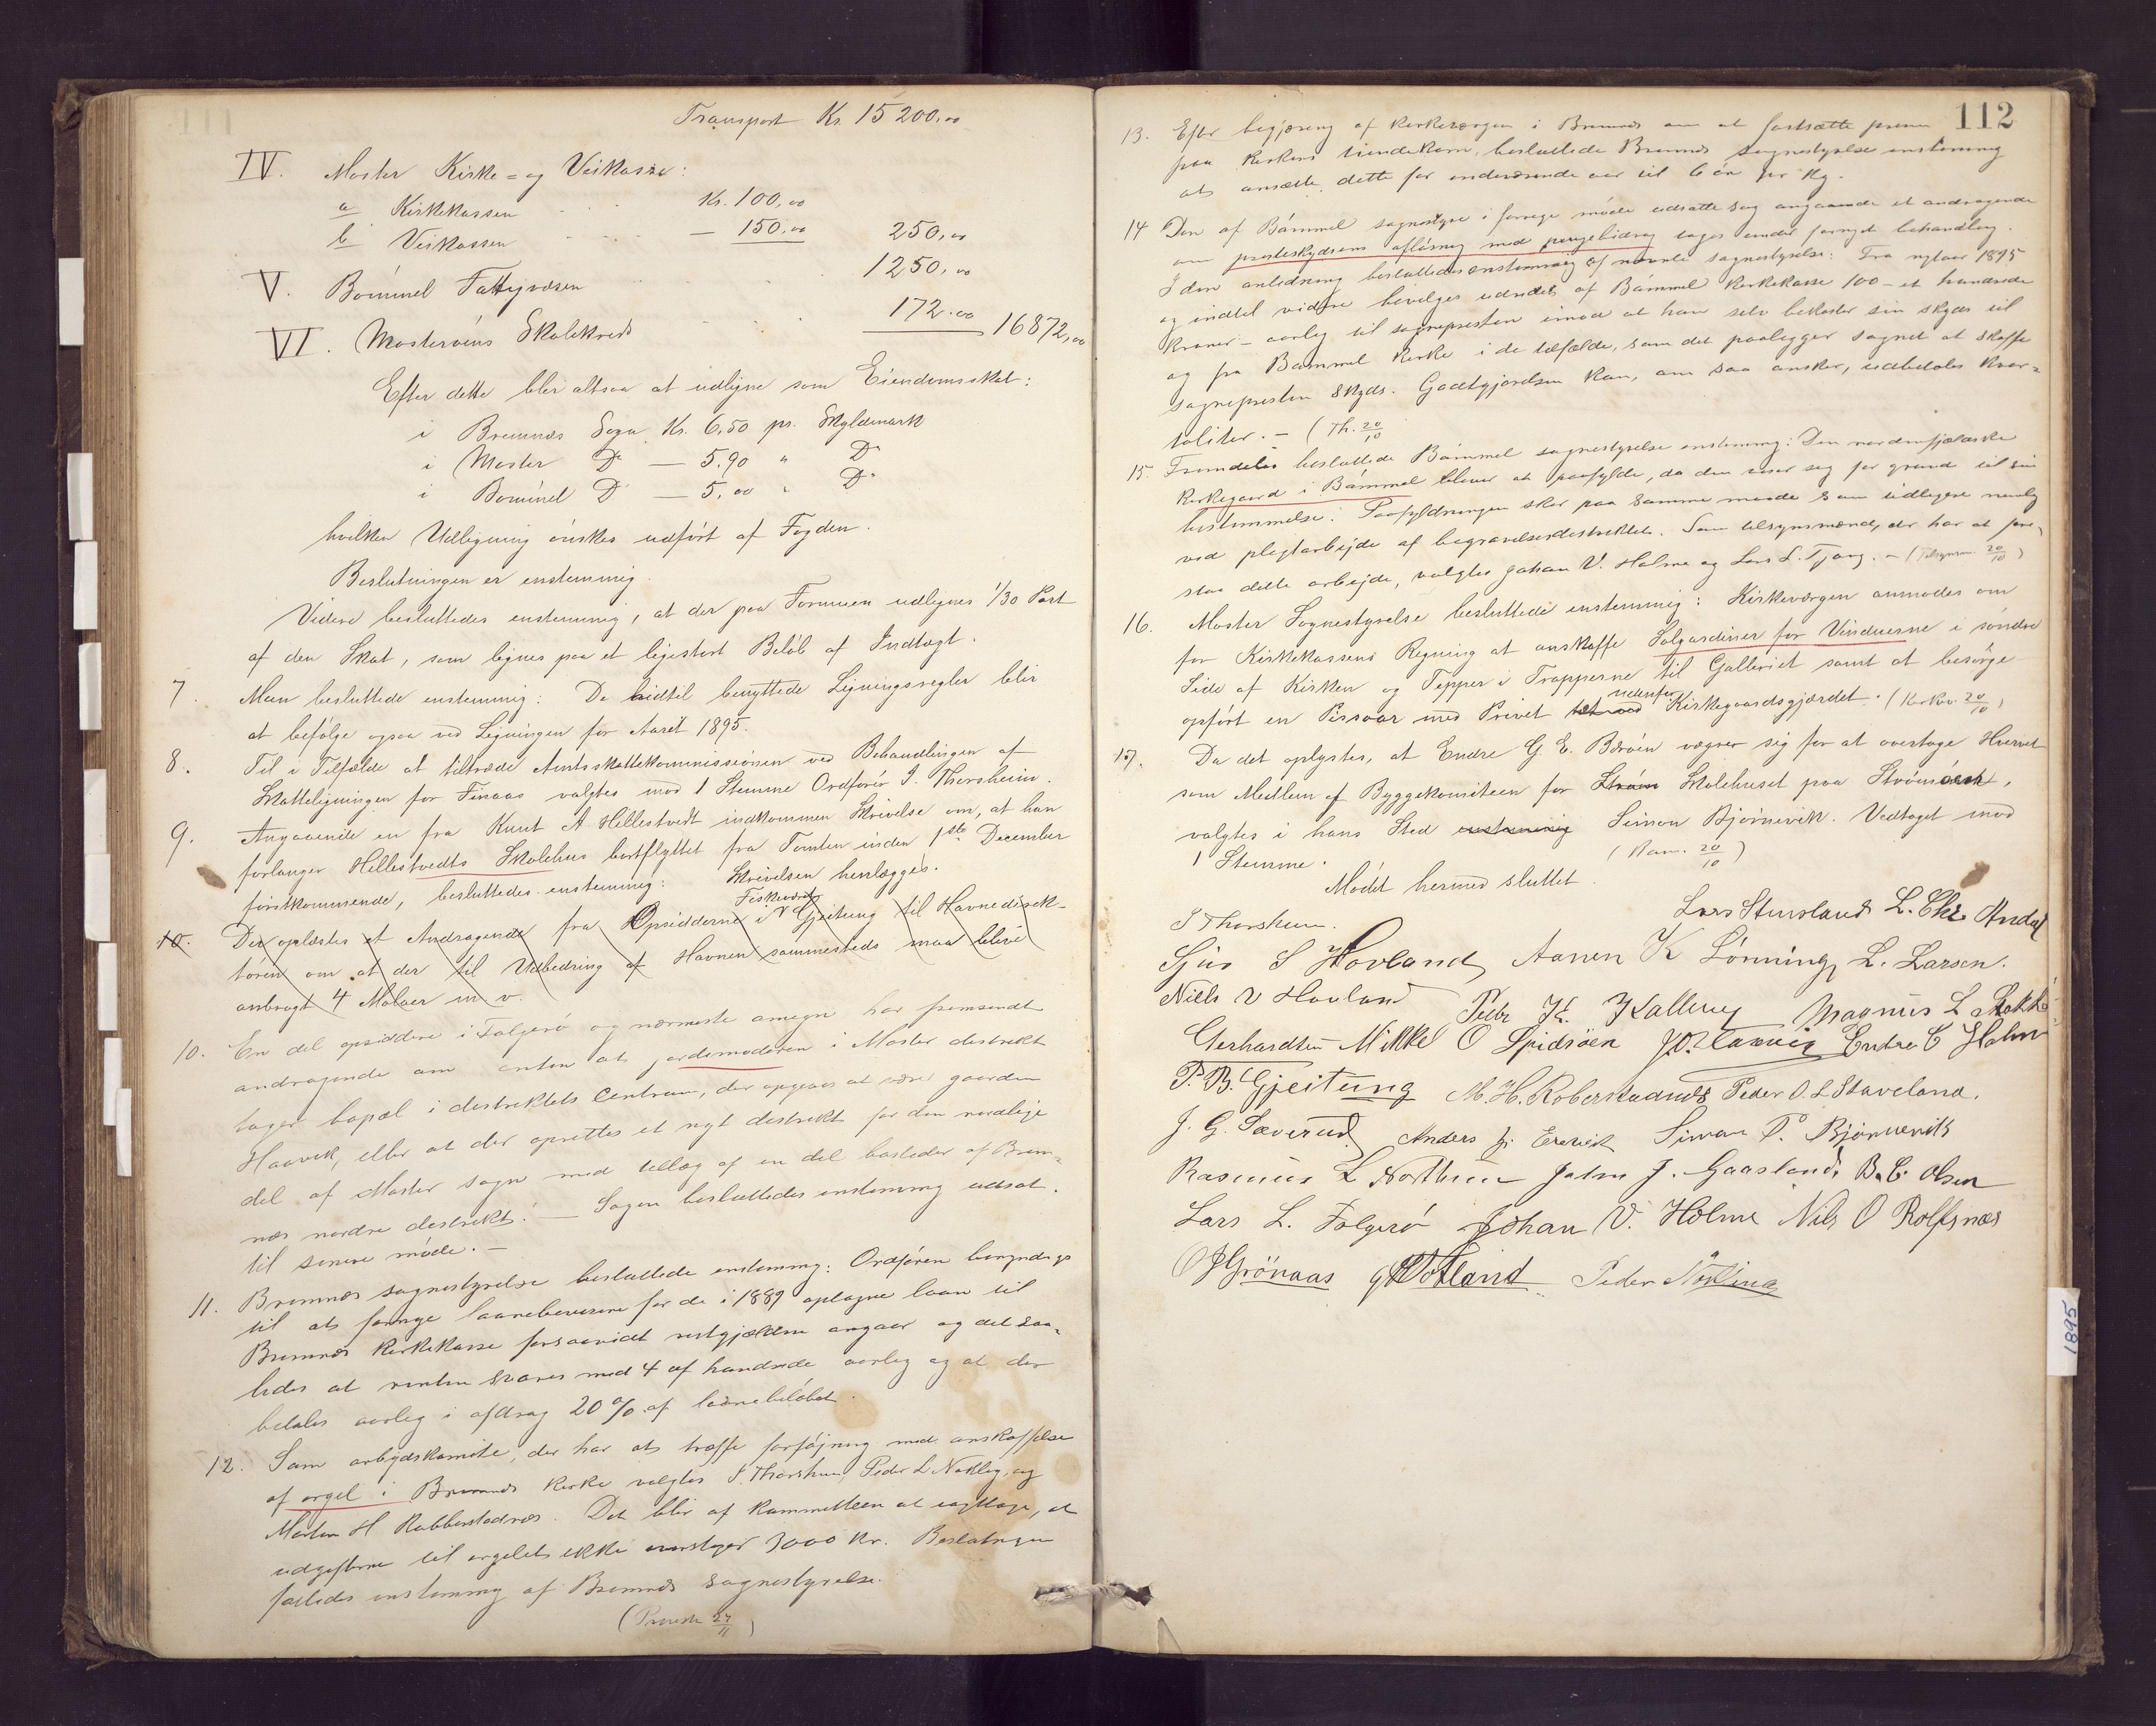 Transport Kr. 15 200,00
IV. Moster Kirke- og Veikasse:
a Kirkekassen Kr. 100,00
b Veikassen — 150,00 250,00
V. Bömmel Fattigvæsen 1250,00
VI. Mosterøens Skolekreds 172.00 16872,00
Efter dette blir altsaa at udligne som Eiendomsskat:
i Bremnes Sogn Kr. 6,50 pr. Skyldmark
i Moster Do — 5,90 " Do
i Bömmel Do — 5,00 " Do
hvilken Udligning önskes udfört af Fogden.
Beslutningen er enstemmig.
Videre besluttedes enstemmig, at der paa Formuen udlignes 1/30 Part
af den Skat, som lignes paa et ligestort Belöb af Indtægt.
7. Man besluttede enstemmig: De hidtil benyttede Ligningsregler blir
at befölge ogsaa ved Ligningen for Aaret 1895.
8. Til i Tilfælde at tiltræde Amtsskattekommissionen ved Behandlingen af
Skatteligningen for Finaas valgtes mod 1 Stemme Ordförer I. Thorsheim.
9. Angaaende en fra Knut A Hellestvedt indkommen Skrivelse om, at han
forlanger Hellestvedts Skolehus bortflyttet fra Tomten inden 1ste December
förstkommende, besluttedes enstemmig: Skrivelsen henlægges.
10. Der oplæstes et Andragende fra Opsidderne i Fiskeværet Gjeitung til Havnedirek-
tören om at der til Udbedring af Havnen sammesteds maa blive
anbragt 4 Moloer m. v.
10. En del opsiddere i Folgerö og nærmeste omegn har fremsendt
andragende om enten at jordemoderen i Moster destrikt
tager bopæl i destriktets Centrum, der opgives at være gaarden
Haavik, eller at der oprettes et nyt destrikt for den nordlige
del af Moster sogn med tillæg af en del bosteder af Brem-
nes nordre destrikt. — Sagen besluttedes enstemmig udsat
til senere møde. —
11. Bremnes sognestyrelse besluttede enstemmig: Ordføren bemyndiges
til at fornye laanebeviserne for de i 1889 optagne laan til
Bremnes Kirkekasse forsaavidt restgjælden angaar og det saa-
ledes at renten svares med 4 af hundrede aarlig og at der
betales aarlig i afdrag 20 % af laanebeløbet.
12. Som arbejdskomite, der har at træffe forføjning med anskaffelse
af orgel i Bremnes Kirke valgtes I. Thorsheim, Peder L Nøkling, og
Morten H Robberstadnes. Det blir af kommitteen at iagttage, at
udgifterne til orgelet ikke overstiger 3000 Kr. Beslutningen
fattedes enstemmig af Bremnes sognestyrelse.
(27/11)
112
13. Efter begjæring af Kirkeværgen i Bremnes om at fastsætte prisen
paa Kirkens tiendekorn, besluttede Bremnes sognestyrelse enstemmig
at ansætte dette for indeværende aar til 6 øre pr Kg.
14 Den af Bømmel sognestyre i forrige møde udsatte sag angaaende et andragende
om presteskydsens afløsning med pengebidrag tages under fornyet behandling.
I den anledning besluttedes enstemmig af nævnte sognestyrelse: Fra nytaar 1895
og indtil videre bevilges udredet af Bømmel Kirkekasse 100 – et hundrede
Kroner – aarlig til sognepresten imod at han selv bekoster sin skyds til
og fra Bømmel Kirke i de tilfælde, som det paaligger sognet at skaffe
sognepresten skyds. Godtgjørelsen kan, om saa ønskes, udbetales kvar-
taliter. – (Th. 20/10
15. Fremdeles besluttede Bømmel sognestyrelse enstemmig: Den nordenfjælske
Kirkegaard i Bømmel bliver at paafylde, da den viser sig for grund til sin
bestemmelse. Paafyldningen sker paa samme maade som tidligere nemlig
ved pligtarbejde af begravelsesdestriktet. Som tilsynsmænd, der har at fore-
staa dette arbejde, valgtes Johan V. Holme og Lars L. Tjong. – (Tilsynsm. 20/10)
16. Moster Sognestyrelse besluttede enstemmig: Kirkeværgen anmodes om
for Kirkekassens Regning at anskaffe Solgardiner for Vinduerne i söndre
Side af Kirken og Tepper i Trapperne til Galleriet samt at besörge
opfört en Pissoar med Privet tæt ved udenfor Kirkegaardsgjærdet. (Kirkev. 20/10)
17. Da det oplystes, at Endre G E. Börøen vægrer sig for at overtage Hvervet
som Medlem af Byggekomiteen for Ström Skolehuset paa Strömsnes,
valgtes i hans Sted enstemmig Simon Björnevik. Vedtaget mod
1 Stemme. (Ram. 20/10)
Mödet hermed sluttet.
I Thorsheim. Lars Stensland L. Chr. Andal
Sjur S Hovland Aanen K Lönning L. Larsen.
Niels N Hovland Peder K. Kallevig Magnus L Stokkö
Gerhardsen Mikkel O Spidsöen Endre E Holm
P. B. Gjeitung M. H. Roberstadnes Peder O. L Staveland.
J. G. Sæverud Anders J. Ersvik Simon P. Björnevik
Rasmus L Nortun John J. Gaasland. B. C. Olsen
Lars L. Folgerö Johan V. Holme Nils O Rolfsnæs
O J Grönaas G Votland Peder Nökling
1895